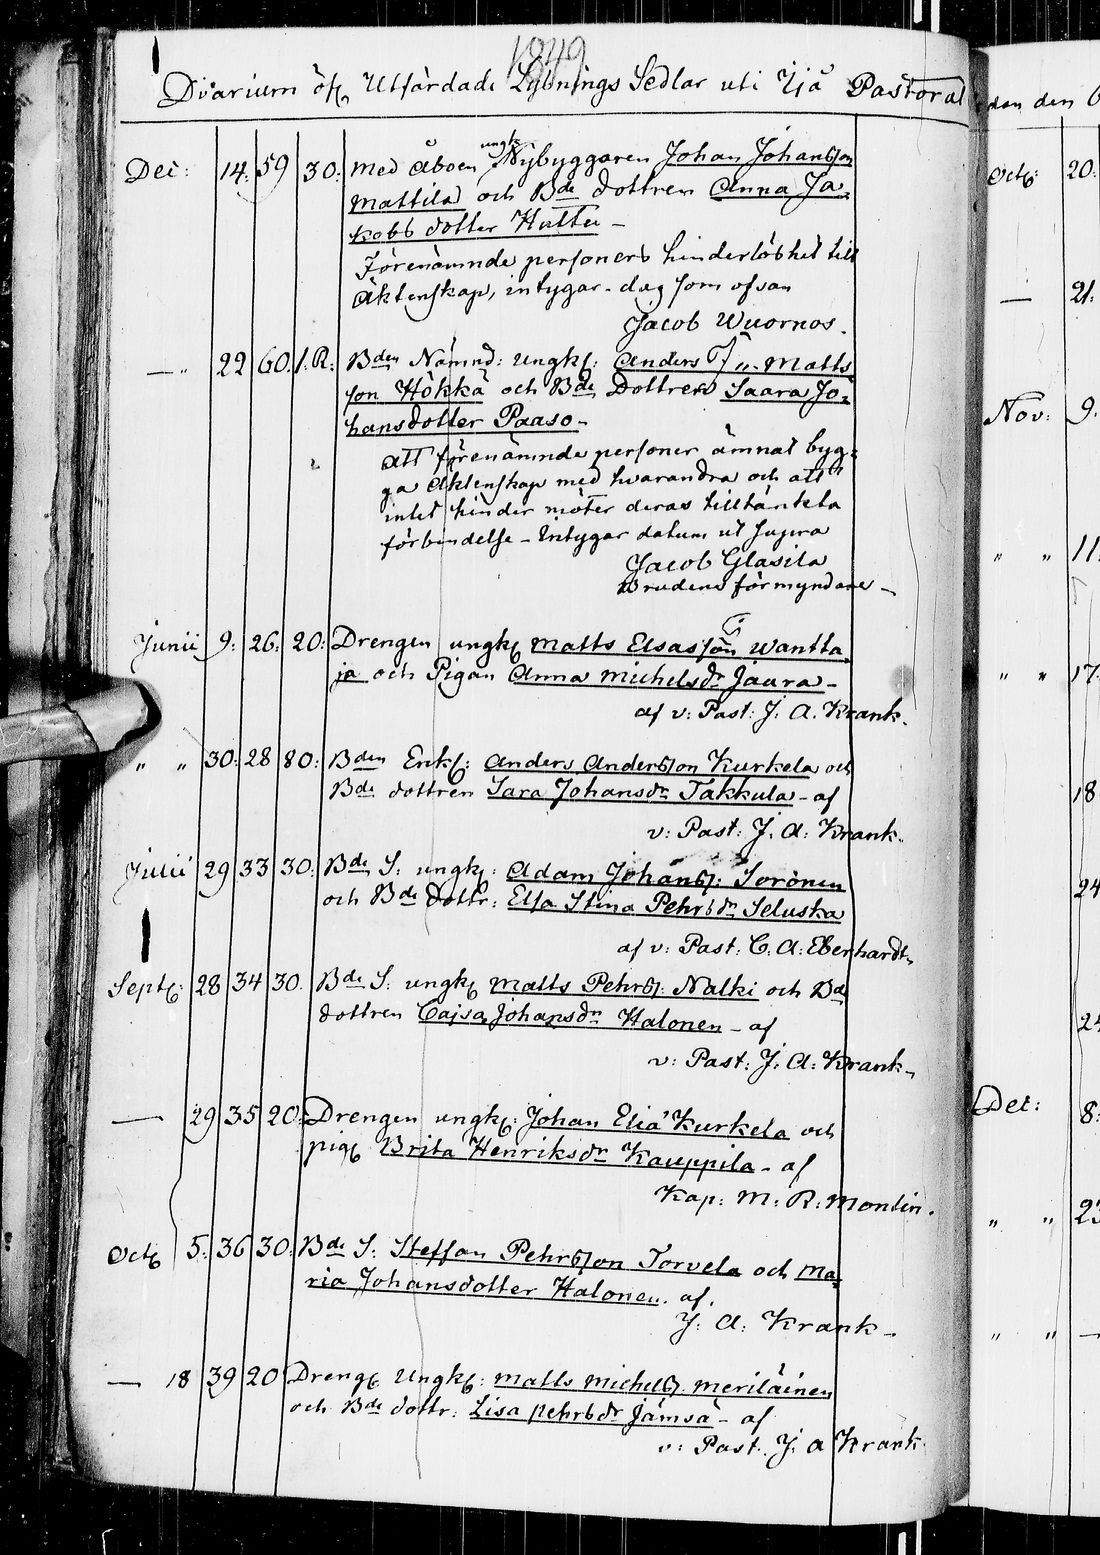 1849
Diarium öfr Utfärdade Lysnings Sedlar uti Ijå Pastorat
Dec: 14. 59 30. med Åboen ungk. Nybyggaren Johan Johansson
Mattila och Bde dottren Anna Ja-
kobs dotter Huttu -
Förenämnde personers hinderlöshet till
Äktenskap, intygar - dag som ofvan
Jacob Wuornos.
— 22 60. 1. R: Bden Nämnd: ungk: Anders Matts
son Hökkä och Bde Dottren Saara Jo-
hansdotter Paaso -
att förenämnde personer ämnat byg-
ga Äktenskap med hvarandra och att
intet hinder möter deras tilltänkta
förbindelse - Intygar datum ut supra
Jacob Glasila
Brudens förmyndare -
Junii 9: 26: 20: Drengen ungk Matts Elsasson Wantta-
ja och Pigan Anna Michelsdr Jaura -
af v: Past: J. A. Krank.
„ „ 30: 28 80: Bden Enkl: Anders Andersson Kurkela och
Bde dottren Sara Johansdr Takkula - af
v: Past: J. A: Krank.
Julii 29 33 30: Bde S: ungk: Adam Johanss: Soronen
och Bde dottr: Elsa Stina Pehrsdr Seluska
af v: Past: C. A: Eberhardt,
Septr: 28 34 30. Bde S: ungk Matts Pehrss: Nalki och Bde
dottren Cajsa Johansdr Halonen - af
v: Past: J. A: Krank -
— 29 35 20: Drengen ungk: Johan Elias Kurkela och
pig Brita Henriksdr Kauppila - af
Kap: M: R: Montin.
Oct 5: 36 30: Bde S: Steffan Pehrsson Torvela och Ma-
ria Johansdotter Halonen. af.
J. A: Krank -
— 18 39 20 Dreng Ungk: Matts Michelss. Meriläinen
och Bde dottr: Lisa Pehrsdr Jämsä - af
v: Past. J. A Krank.
dan den
Oct: 20:
— 21.
Nov: 9.
„ „ 11.
„ „ 17.
18
24
24
Dec: 8:
„ „ 23
„ „ —